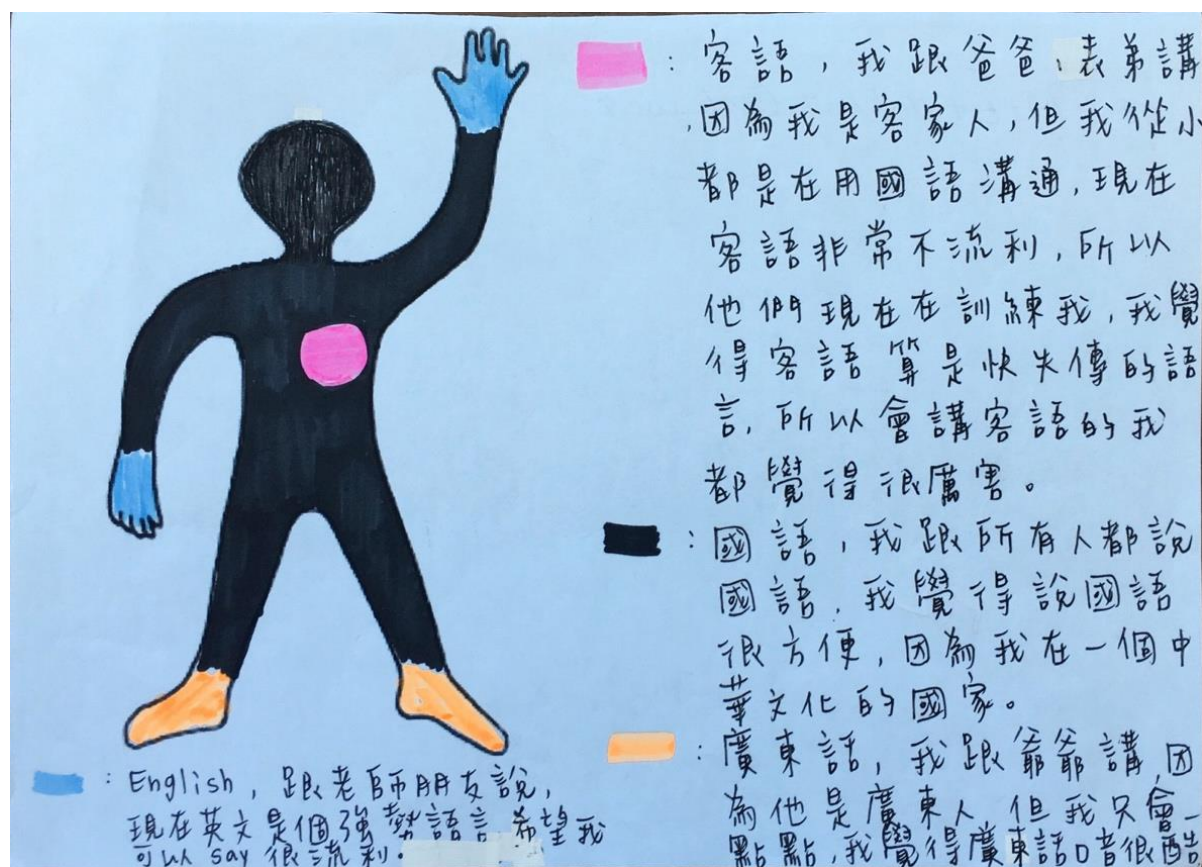 ：客語，我跟爸爸、表弟講
，因為我是客家人，但我從小
都是在用國語溝通，現在
客語非常不流利，所以
他們現在在訓練我，我覺
得客語算是快失傳的語
言，所以會講客語的我
都覺得很厲害。
：國語，我跟所有人都說
國語，我覺得說國語
很方便，因為我在一個中
華文化的國家。
：廣東話，我跟爺爺講，因
為他是廣東人 但我只會一
點點，我覺得廣東話口音很酷
：English，跟老師朋友說，
現在英文是個強勢語言，希望我
可以 say 很流利。